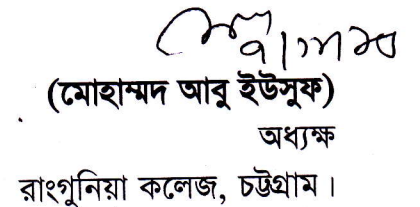 (মোহাম্মদ আবু ইউসুফ)
অধ্যক্ষ
রাংগুনিয়া কলেজ, চট্টগ্রাম।